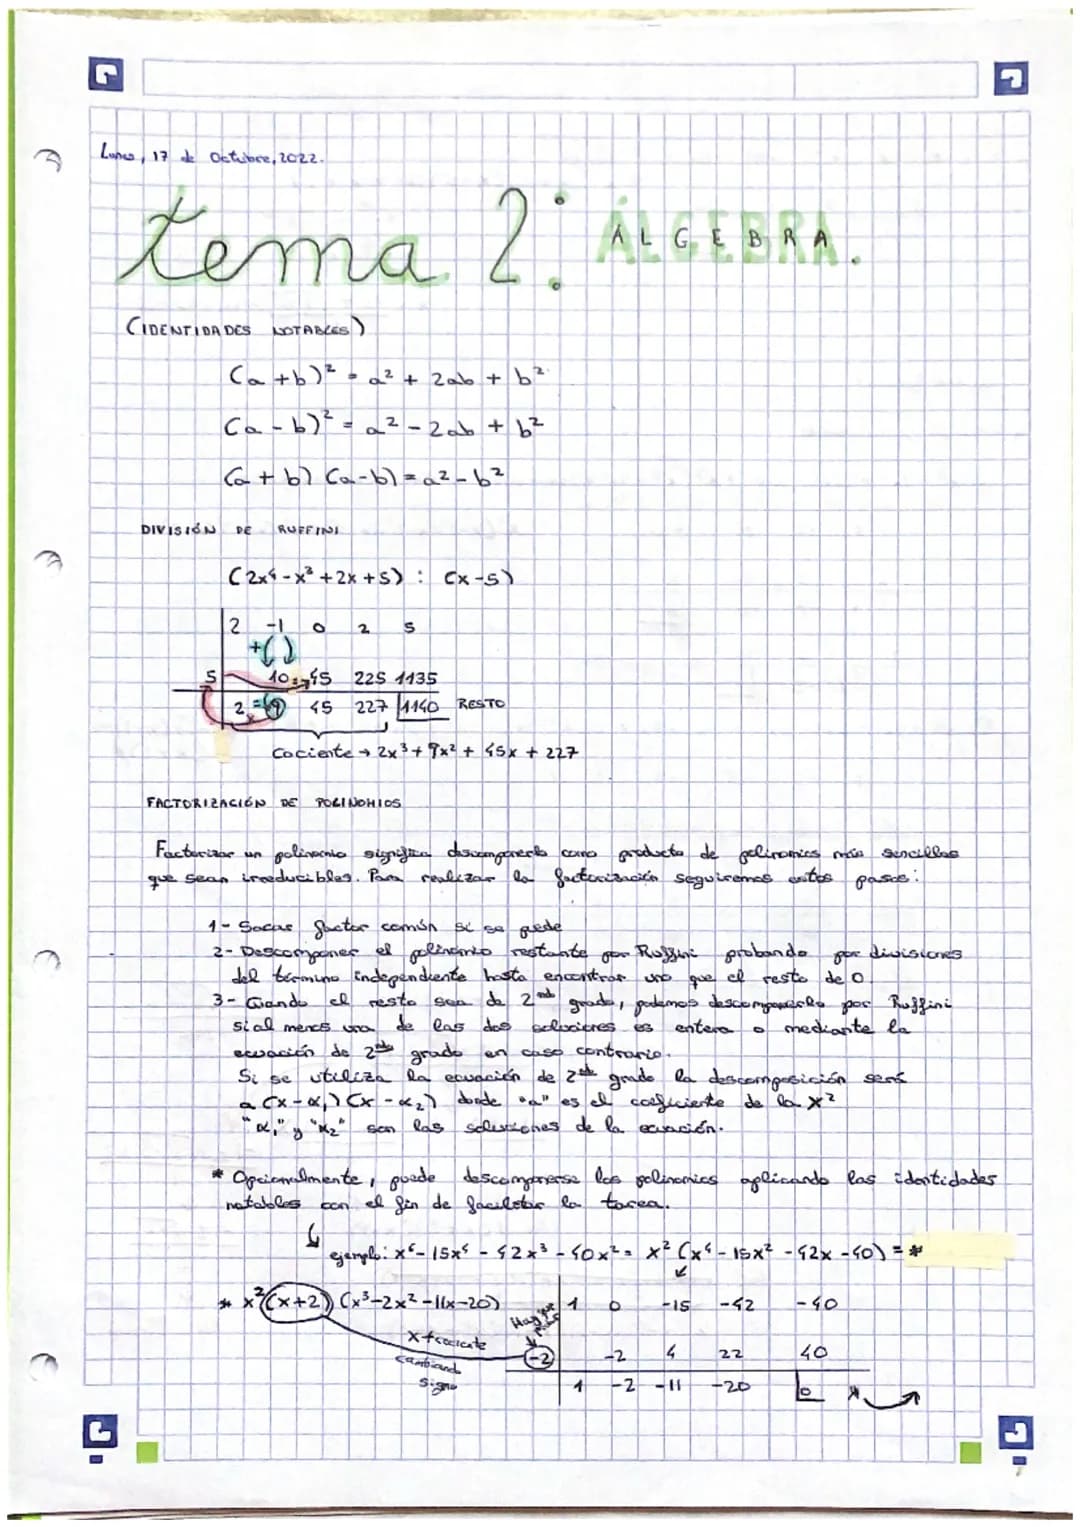 Lunes, 17 de Octubre, 2022.
tema 2: ÁLGEBRA.
(IDENTIDADES NOTABLES)
(a+b)² = a² + 2ab + b²
(a-b)² = a² - 2ab + b²
(a+b) (a-b) = a² - b²
DIVISIÓN DE RUFFINI
(2x⁴ - x³ + 2x + 5) : (x-5)
2 -1 0 2 5
+
5 10 = 45 225 1135
2 = 9 45 227 1140 RESTO
x
Cociente → 2x³ + 9x² + 45x + 227
FACTORIZACIÓN DE POLINOMIOS
Factorizar un polinomio significa descomponerlo como producto de polinomios más sencillos
que sean irreducibles. Para realizar la factorización seguiremos estos pasos:
1- Sacar factor común si se puede
2- Descomponer el polinomio restante por Ruffini probando por divisiones
del término independiente hasta encontrar uno que el resto de 0.
3- Cuando el resto sea de 2do grado, podemos descomponerlo por Ruffini
si al menos una de las dos soluciones es entera o mediante la
ecuación de 2do grado en caso contrario.
Si se utiliza la ecuación de 2do grado la descomposición será
a (x-α₁) (x-α₂) donde "a" es el coeficiente de la x²
"α₁" y "α₂" son las soluciones de la ecuación.
* Opcionalmente, puede descomponerse los polinomios aplicando las identidades
notables con el fin de facilitar la tarea.
ejemplo: x⁶ - 15x⁴ - 42x³ - 40x² = x² (x⁴ - 15x² - 42x - 40) = *
* x² (x+2) (x³ - 2x² - 11x - 20)
1 0 -15 -42 -40
x + cociente
cambiando
signo
-2 -2 4 22 40
1 -2 -11 -20 0 *